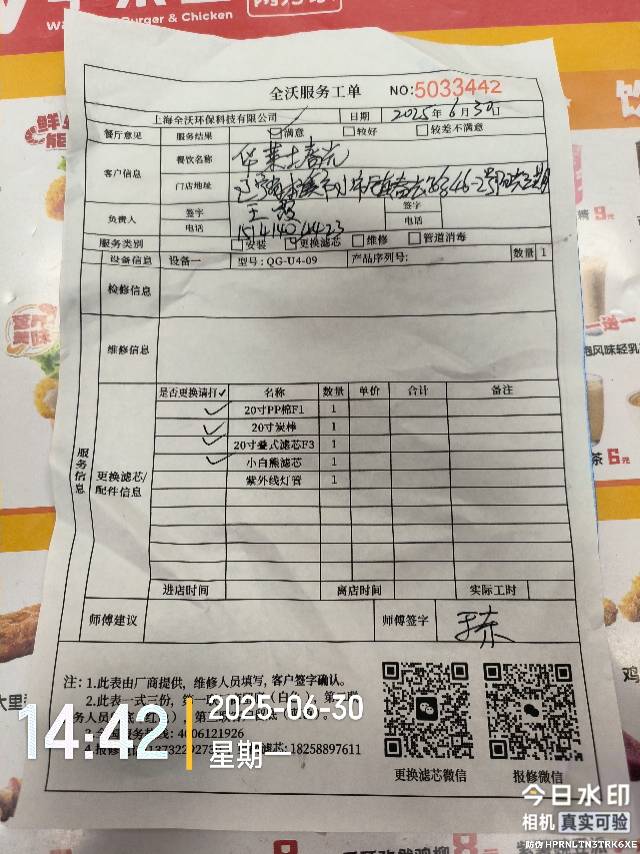 Burger & Chicken
全沃服务工单 NO:5033442
上海全沃环保科技有限公司 日期 2025年6月30日
餐厅意见 服务结果 满意 较好 较差不满意
客户信息 餐饮名称 华莱士
门店地址
负责人 签字 王 签字
电话 15141404423 电话
服务类别 安装 更换滤芯 维修 管道消毒
设备信息 设备一 型号:QG-U4-09 产品序列号: 数量 1
检修信息
维修信息
服务信息
更换滤芯/配件信息
是否更换请打✓ 名称 数量 单价 合计 备注
✓ 20寸PP棉F1 1
✓ 20寸炭棒 1
✓ 20寸叠式滤芯F3 1
✓ 小白熊滤芯 1
紫外线灯管 1
进店时间 离店时间 实际工时
师傅建议 师傅签字
注:1.此表由厂商提供,维修人员填写,客户签字确认。
2.此表一式三份,第一
4006121926
: 18258897611
更换滤芯微信 报修微信
14:42 2025-06-30
星期一
今日水印
相机 真实可验
防伪 HPRNLTN3TRK6XE
9元
买一送一
茶6元